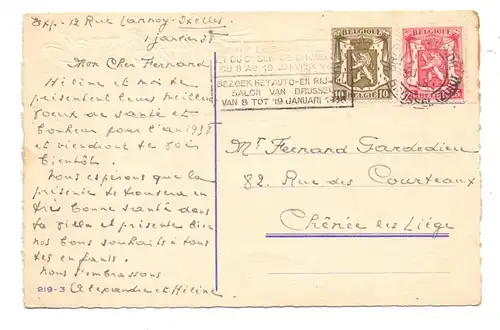 Exp. - 12 Rue Lannoy - Ixelles
1 janvier 38
Mon Cher Fernand
Hélène et moi te
présentent leurs meilleurs
voeux de santé et
bonheur pour l'an 1938
et viendront te voir
bientôt.
Nous espérons que la
présente te trouvera en
très bonne santé dans
ta ville et présente bien
nos bons souhaits à tous
tes enfants.
Nous t'embrassons
Alexandre et Hélène
219-3
BEZOEK HET AUTO- EN RIJWIEL
SALON VAN BRUSSEL
VAN 8 TOT 19 JANUARI
BELGIQUE
10 10
BELGIE
BELGIQUE
BELGIE
Mr Fernand Gardedieu
82, Rue des Courteaux
Chênée lez Liège